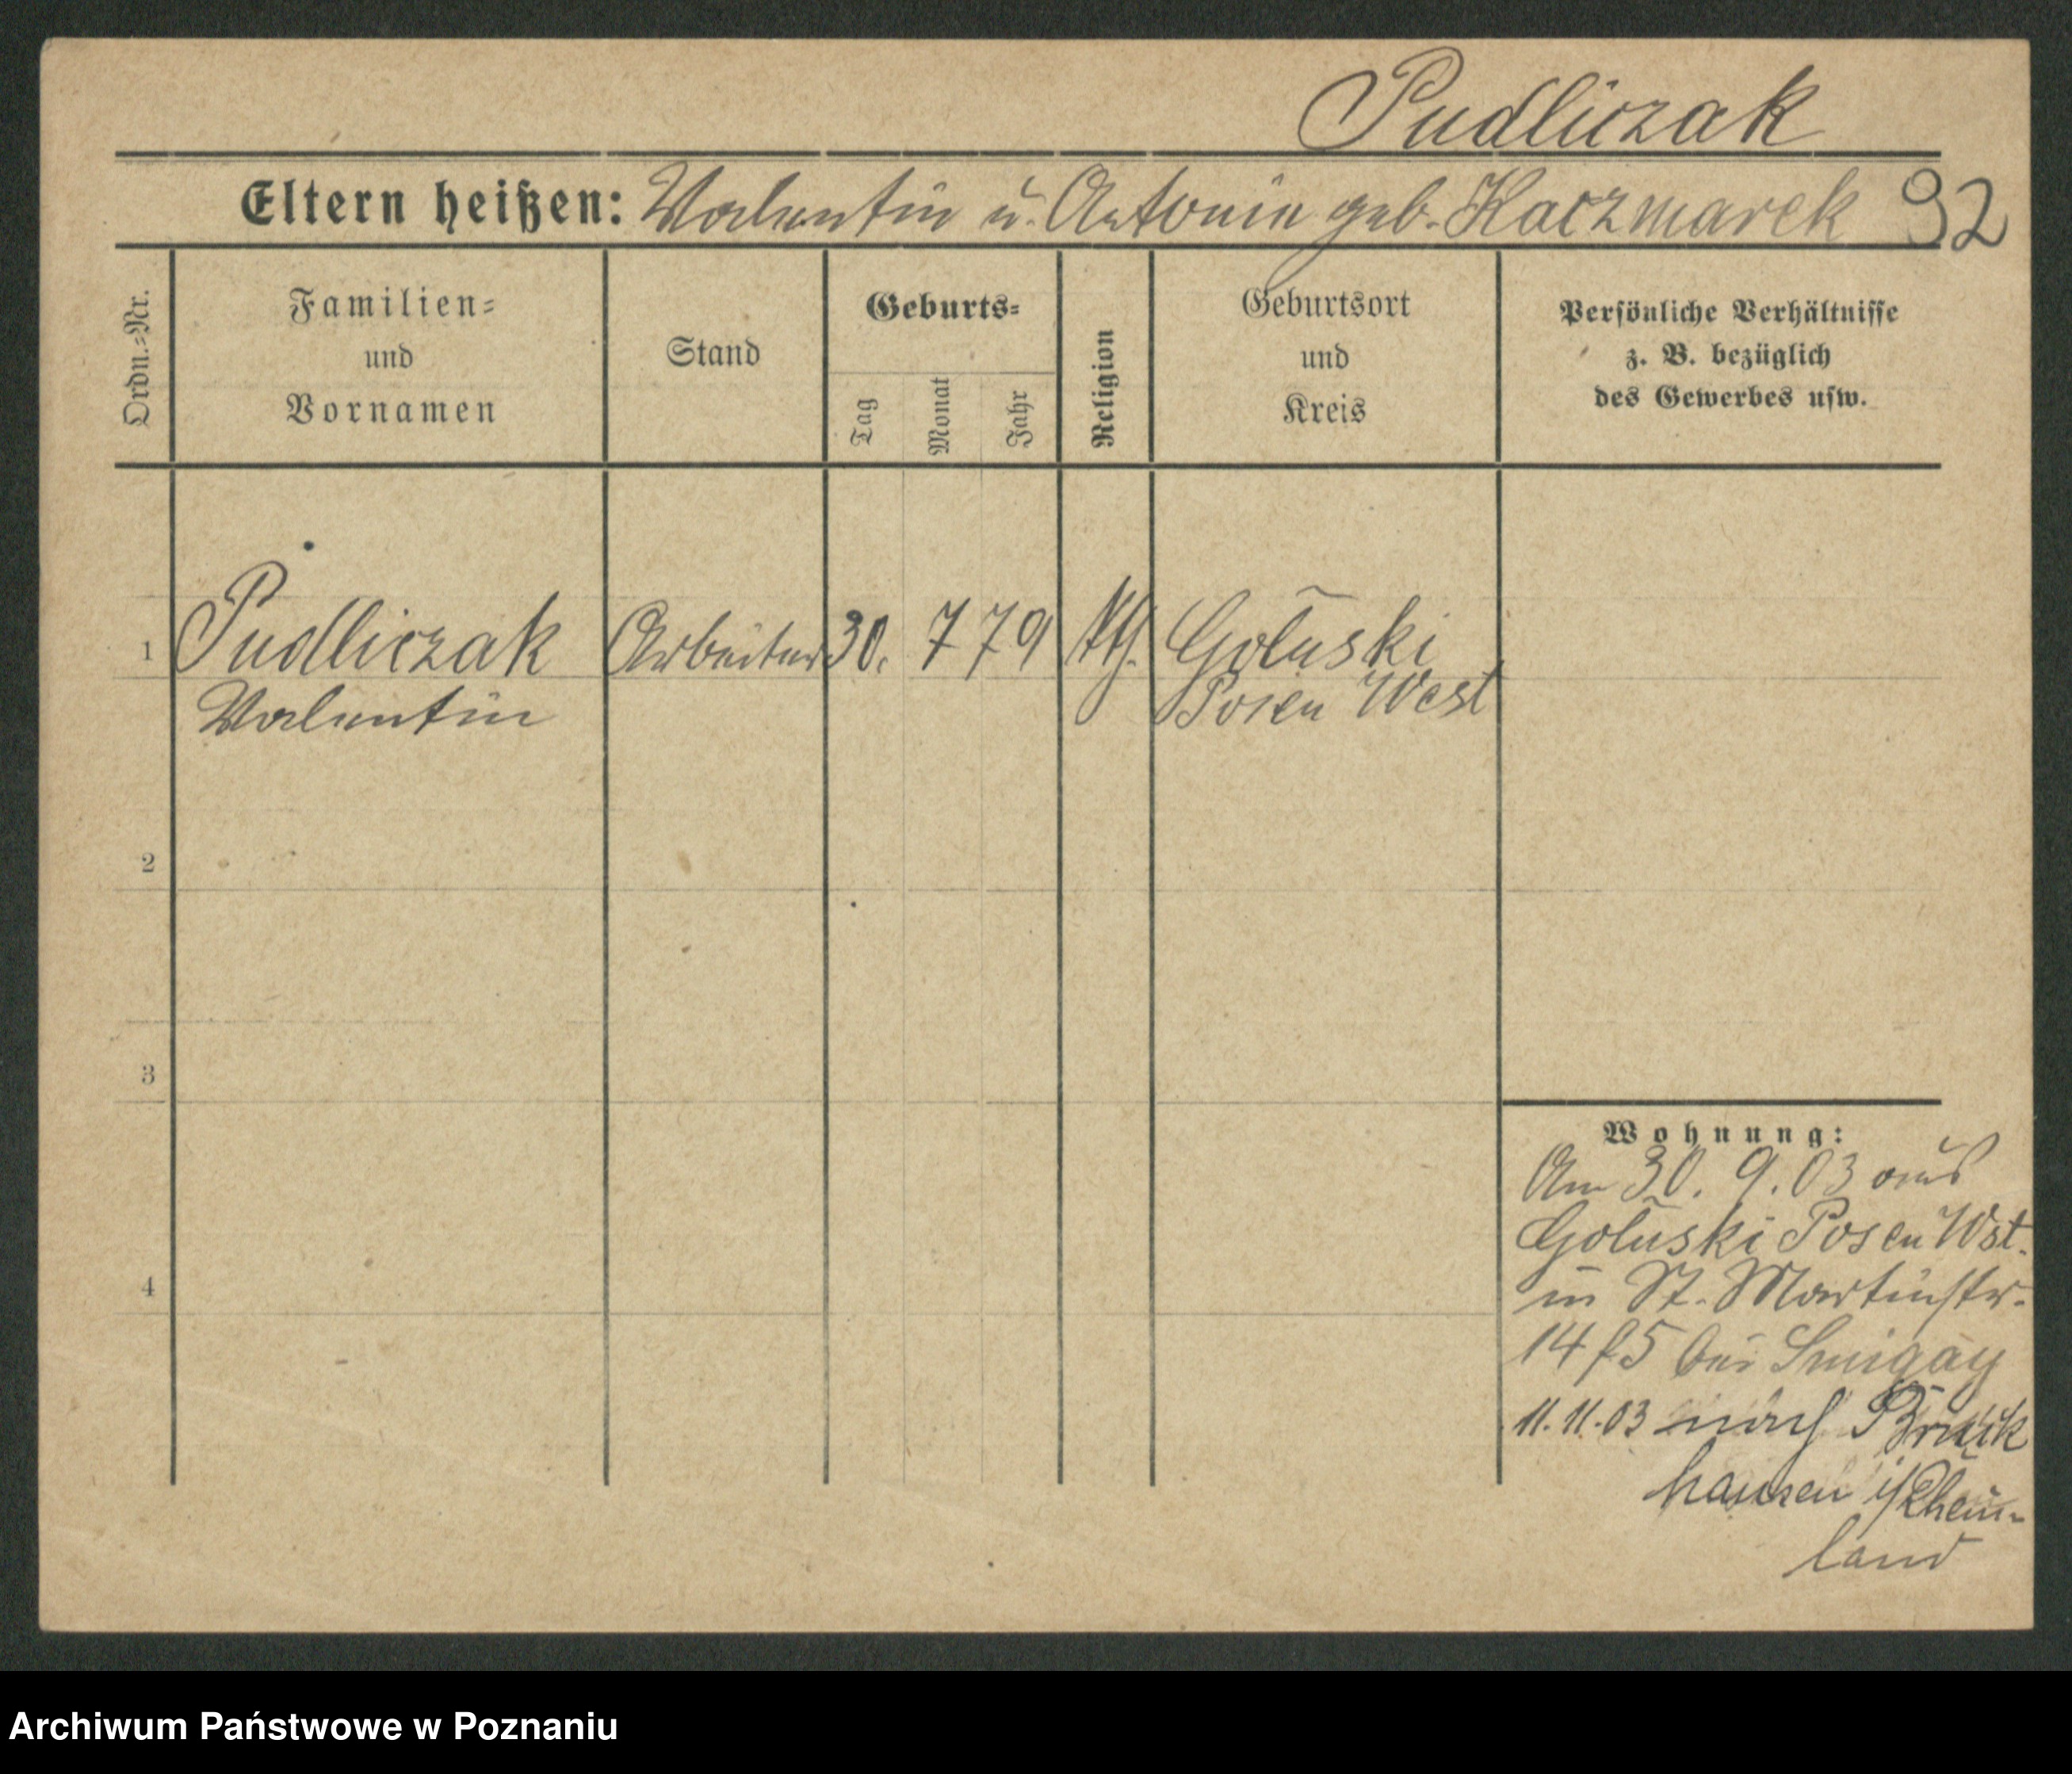 Pudliczak
Eltern heißen: Valentin u. Antonie geb. Kaczmarek 92
Ordn.=Nr.
Familien=
und
Vornamen
Stand
Geburts=
Tag
Monat
Jahr
Religion
Geburtsort
und
Kreis
Persönliche Verhältnisse
z. B. bezüglich
des Gewerbes usw.
1 Pudliczak Arbeiter 30. 7 79 kth. Goluski
Valentin Posen West
2
3
4
Wohnung:
Am 30. 9. 03 aus
Goluski Posen Wst.
in St. Martinstr.
14 f5 bei Smigay
11.11.03 nach Bruck
hausen i/Rhein-
land
Archiwum Państwowe w Poznaniu